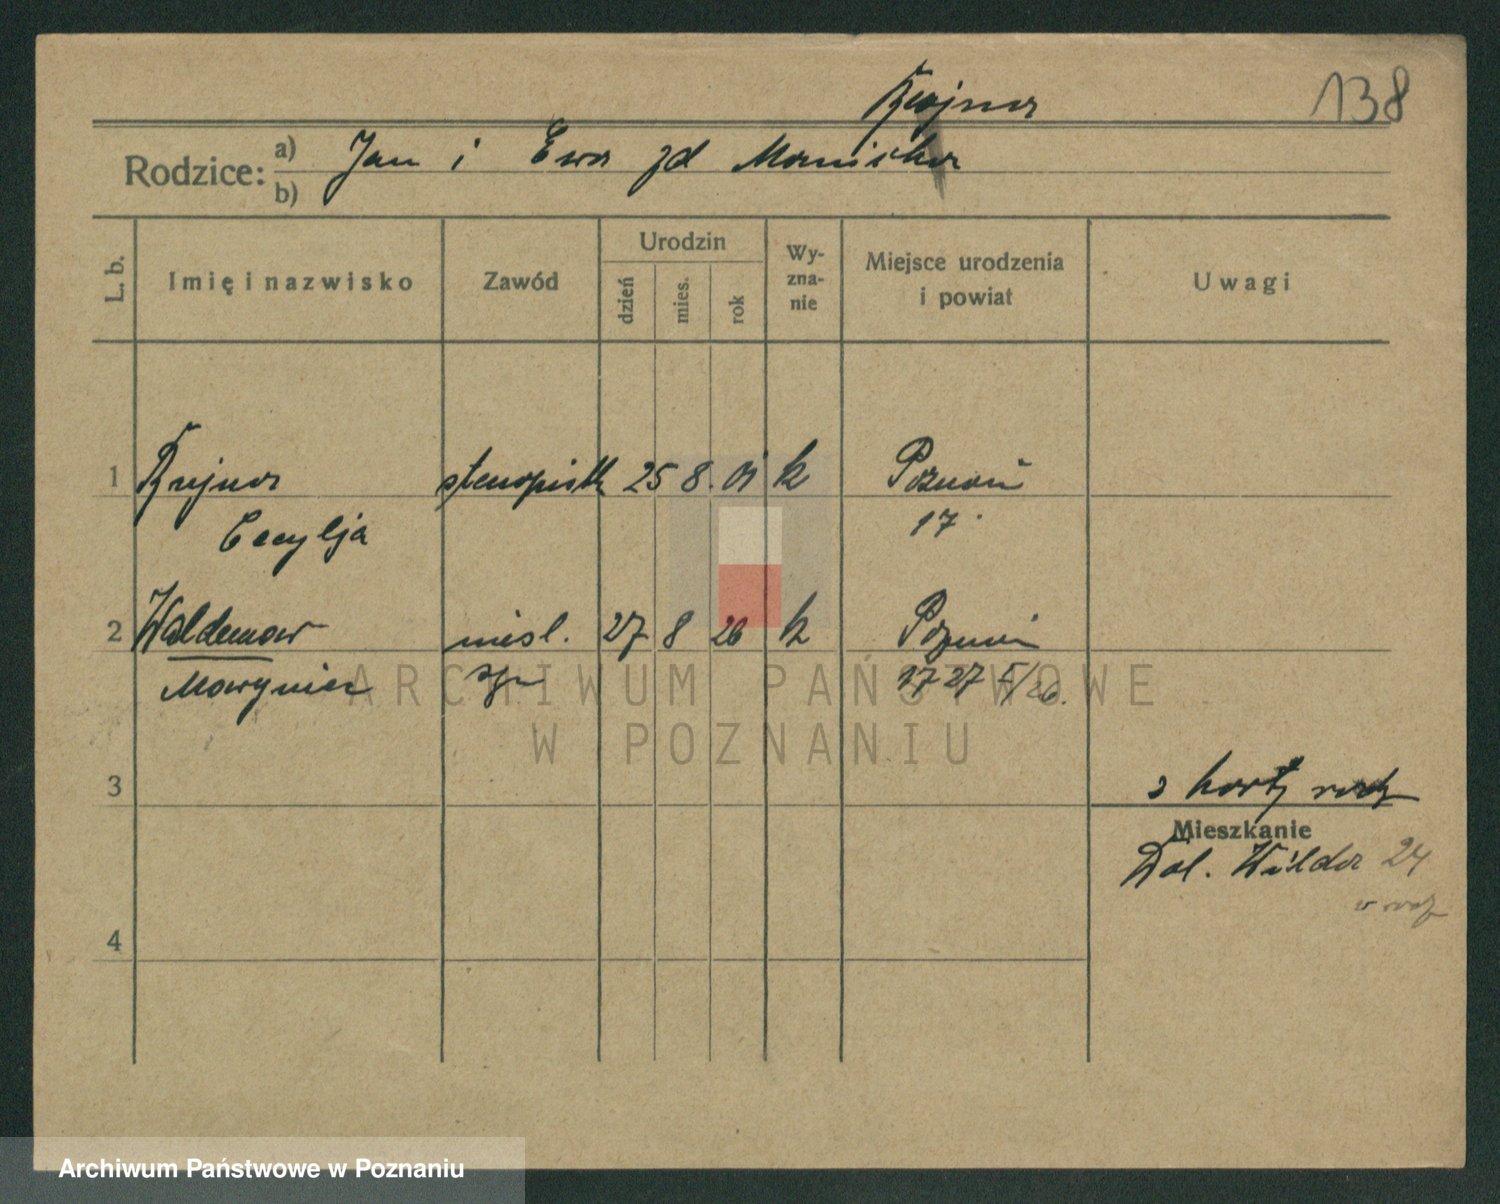 138
Rodzice: a) Jan i Ewa zd
b)
L. b.
Imię i nazwisko
Zawód
Urodzin
dzień
mies.
rok
Wy-
zna-
nie
Miejsce urodzenia
i powiat
Uwagi
1 stenopistk 25 8. 01 k Poznań
Cecylja 17
2 Waldemar niesl. 27 8 26 k Poznań
syn 17 27 /26.
3 z karty rodz
Mieszkanie
Dol. Wilda 24
w rodz
4
ARCHIWUM PAŃSTWOWE
W POZNANIU
Archiwum Państwowe w Poznaniu